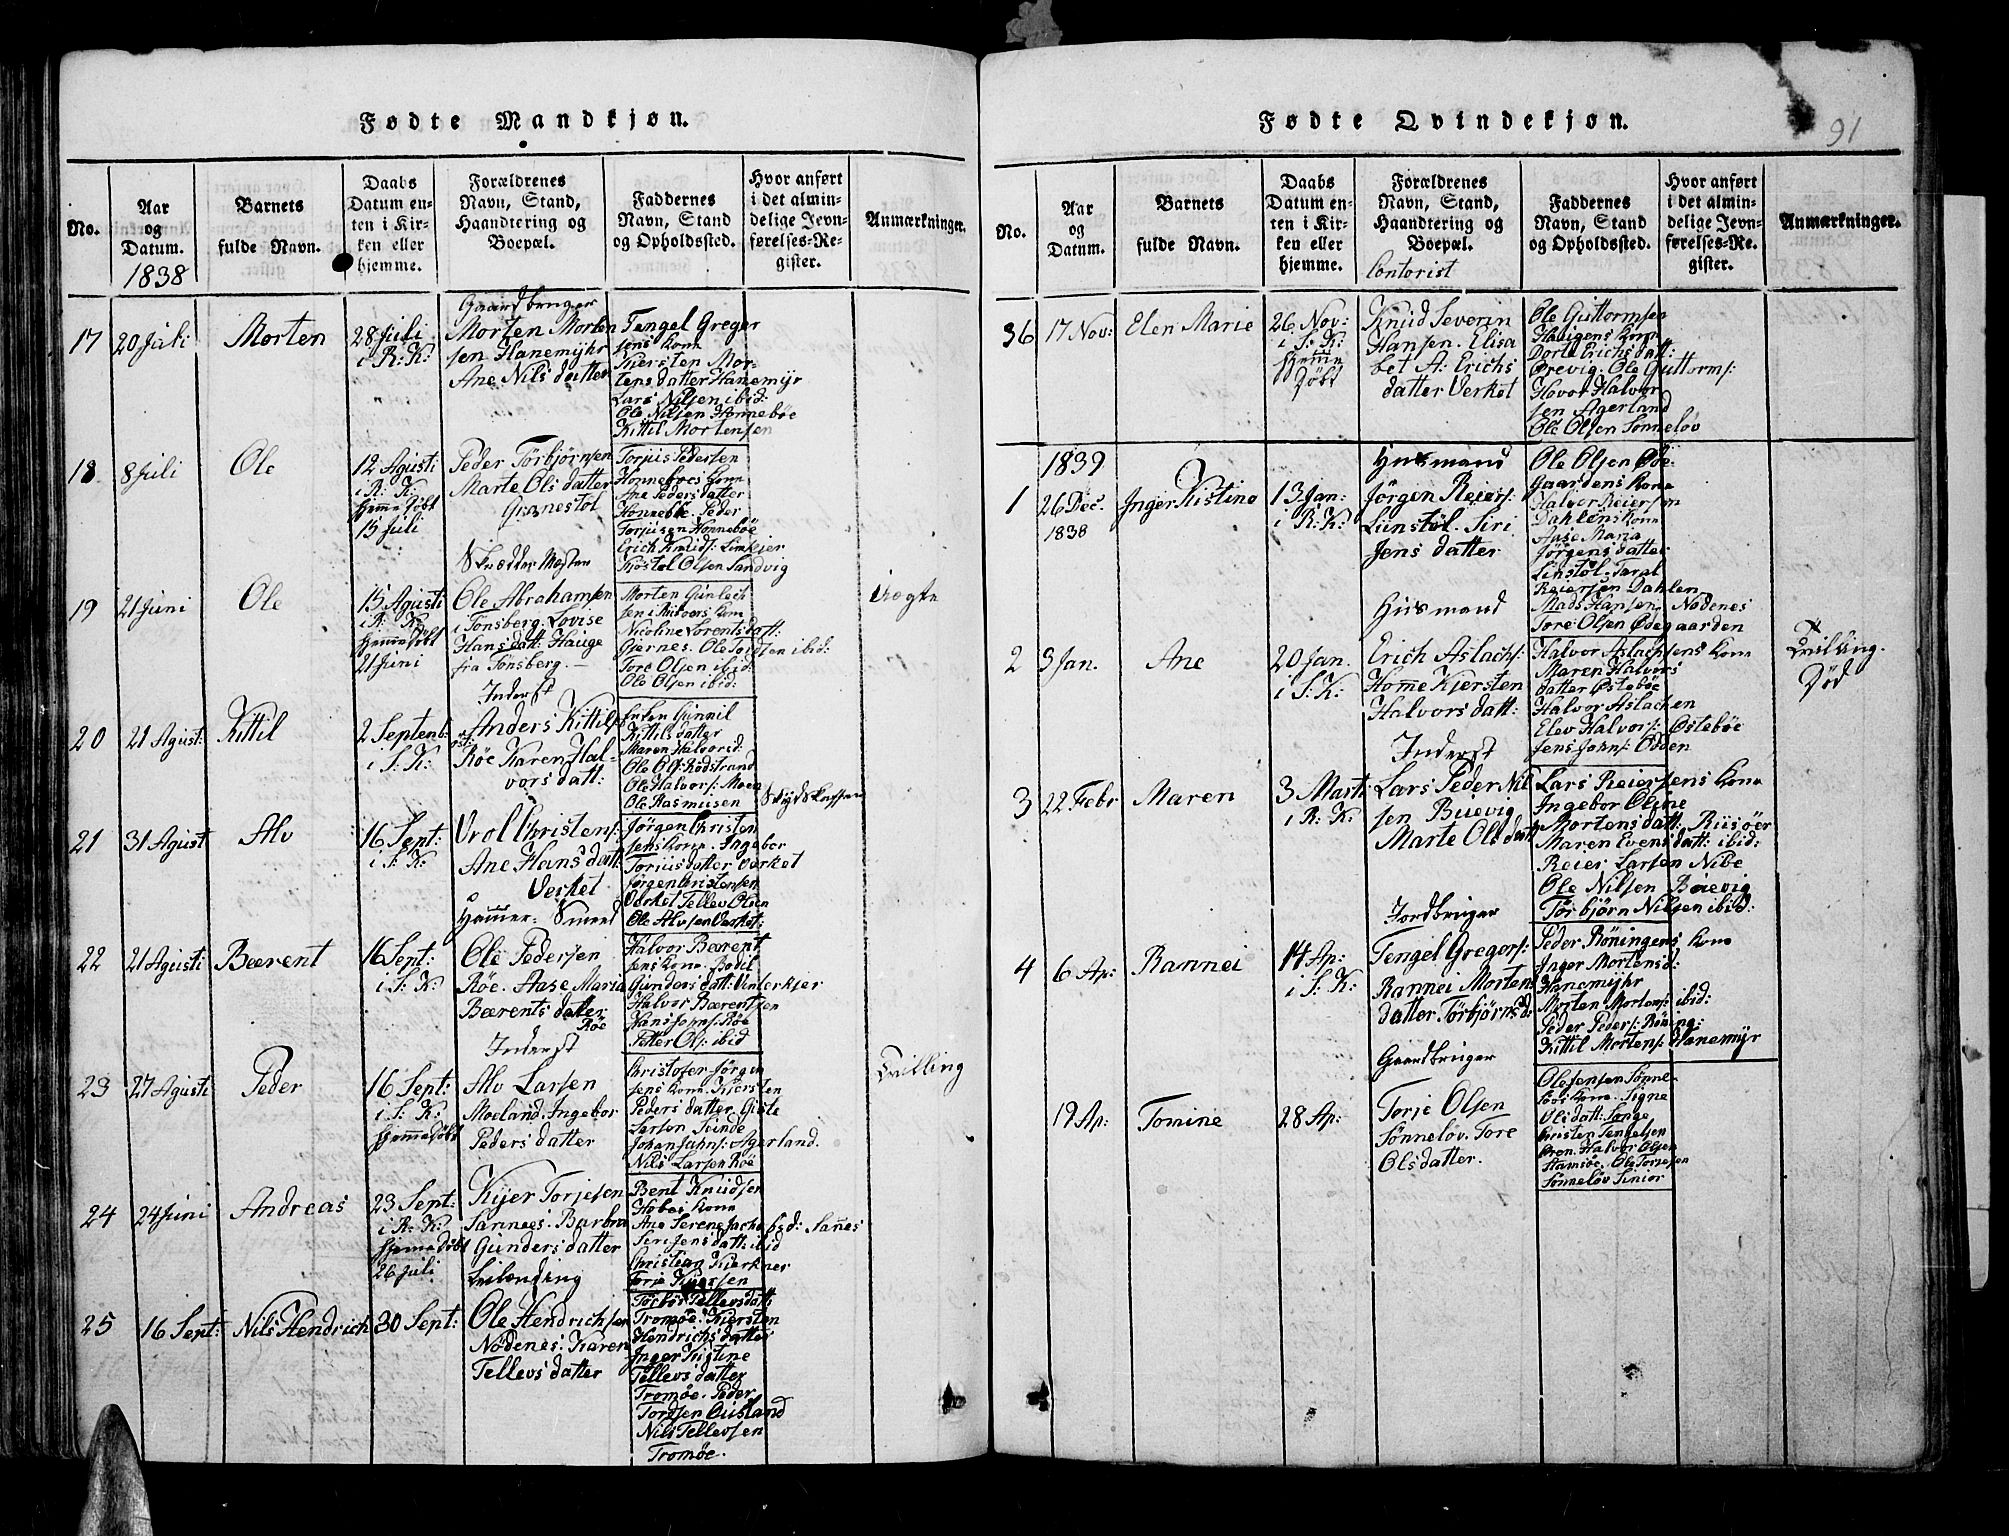 Fødte Mandkjøn.
No.
Aar
og
Datum.
1838
Barnets
fulde Navn.
Daabs
Datum en-
ten i Kir-
ken eller
hjemme.
Forældrenes
Navn, Stand,
Haandtering og
Boepæl.
Faddernes
Navn, Stand
og Opholdssted.
Hvor anført
i det almin-
delige Jevn-
førelses-Re-
gister.
Anmærkninger.
17
20 Juli
Morten
28 Juli
i R: K:
Gaardbruger
Morten Morten
sen Hanemyhr
Ane Nils datter
Tengel Greger
sens Kone
Kiersten Mor-
tensdatter Hanemyr
Lars Nilsen ibid:
Ole Nilsen Honnebøe
Kittil Mortensen
18
8 Juli
Ole
12 Agusti
i R: K:
hjemedøbt
15 Juli
Peder Torbjørnsen
Marte Ols datter
Grønestøl
Torjus Pedersen
Honneboes Kone
Ane Pedersdatter
Honneboe. Peder
Torjusen Honnebøe
Erich Knuds: Limkjer
Kjøstel Olsen Sandvig
19
21 Juni
Ole
15 Agusti
i R: K:
hjemedøbt
21 Juni
Skrædder Mester
Ole Abrahamsen
i Tonsberg. Lovise
Hans datt: Hauge
fra Tønsberg.
Morten Gunlech
sen i Risvors Kone
Nicoline Lorentsdatt:
Gjernes. Ole Tordsen ibid:
Tore Olsen ibid:
Ole Olsen ibid:
Uægte
20
21 Agust:
Kittil
2 Septenb:
i S: K:
Inderst
Anders Kittils:
Røe Karen Hal-
vors datt:
Enken Gunnil
Kittils datter
Maren Halvorsd:
Ole Ols: Rødstrand
Ole Halvors: Moen
Ole Rasmusen
Skydskassen
21
31 Agust
Alv
16 Sept:
i S: K:
Vrol Christens:
Ane Hans datt:
Verket
Jørgen Christen
sens Kone. Ingebor
Torjusdatter Verket
Jørgen Christensen
Verket Tellev Olsen
Ole Alvsen Verket:
22
21 Agusti
Bærent
16 Sept:
i S: K:
Hammer-Smed
Ole Pedersen
Røe. Aase Maria
Bærents datter
Røe
Halvor Bærent
sens Kone. Bodil
Gunders datt: Vinterkjer
Halvor Bærentsen
Hans Johns: Røe
Petter Ols: ibid
23
27 Agusti
Peder
16 Sept:
i S: K:
hjemedøbt
Inderst
Alv Larsen
Moeland. Ingebor
Peders datter
Christofer Jørgen
sens Kone Kiersten
Peders datter Giste
Larsen Seinde
Johan Johns: Agerland.
Nils Larsen Røe
Tvilling
24
24 Juni
Andreas
23 Sept:
i R: K:
hjemedøbt
26 Juli
Kijer Torjesen
Sannes. Barbra
Gunders datter
Bent Knudsen
Hobes Kone
Ane Serene Jacobsd: Sannes
Siri Jensdatt: ibid
Christian Kierkner
Torje Kijersen
25
16 Sept:
Nils Hendrich
30 Sept:
Leilænding
Ole Hendrichsen
Nødenes. Karen
Tellevs datter
Torbor Tellevsdatt:
Tromøe. Kiersten
Hendrichs datter
Inger Kistine
Tellevs datter
Tromøe. Peder
Tordsen Ousland
Nils Tellevsen
Tromøe.
Fødte Qvindekjøn.
91
No.
Aar
og
Datum.
Barnets
fulde Navn.
Daabs
Datum en-
ten i Kir-
ken eller
hjemme.
Forældrenes
Navn, Stand,
Haandtering og
Boepæl.
Faddernes
Navn, Stand
og Opholdssted.
Hvor anført
i det almin-
delige Jevn-
førelses-Re-
gister.
Anmærkninger.
36
17 Nov:
Elen Marie
26 Nov:
i S: K:
hjeme
døbt
Contorist
Knud Severin
Hansen. Elisa
bet A: Erichs
datter Verket
Ole Guttormsen
Hauigens Kone
Dorte Erichs datt:
Ørevig. Ole Guttorms:
Hovor Halvor
sen Agerland
Ole Olsen Sonneløv
1839
1
26 Dec:
1838
Inger Kistine
13 Jan:
i R: K:
Husmand
Jørgen Reiers:
Linstøl. Siri
Jens datter
Ole Olsen Øde-
Gaardens Kone
Halvor Reiersen
Dahlens Kone
Aase Maria
Jörgens datter
Linstøl. Taral
Reiersen Dahlen
Mads Hansen Nødenes
Tore Olsen Ødegaarden
2
9 Jan.
Ane
20 Jan.
i S: K:
Husmand
Erich Aslachs:
Homme Kjersten
Halvors datt:
Halvor Aslachsens Kone
Maren Halvors
datter Østebøe
Halvor Aslacken
Elev Halvors: Østebøe
Jens Johns: Odden
Tvilling.
Død
3
22 Febr
Maren
3 Marti
i R: K:
Inderst
Lars Peder Nil
sen Buevig
Marte Ols datt:
Lars Reiersens Kone
Ingebor Oline
Mortens datt: Riisøer
Maren Evens datt: ibid:
Reier Larsen Nibe
Ole Nilsen Boievig
Torbjørn Nilsen ibid:
4
6 Ap:
Rannei
14 Ap:
i S: K:
Jordbruger
Tengel Gregors:
Rannei Morten
datter Törbjørnsd:
Peder Røningens Kone
Inger Mortensd:
Hanemyhr
Morten Mortens: ibid:
Peder Peders: Røning:
Kittil Mortens: Hanemyr
19 Ap:
Tomine
28 Ap:
Gaardbruger
Torje Olsen
Sønneløv. Tore
Olsdatter.
Ole Jensen Sønne-
løvs Kone. Signe
Olsdatt: Songe
Christen Tengelsen
Øren. Halvor Olsen
Stamsøe. Ole Torjesen
Sønneløv Sinior